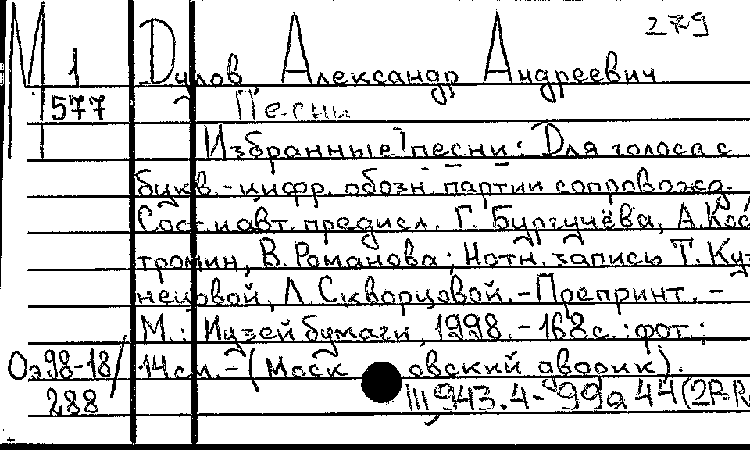 279
М 1 Дулов Александр Андреевич
577 Песни
[Избранные песни: Для голоса с
букв.-цифр. обозн. партии сопровожд.
Сост. и авт. предисл. Г. Бургучёва, А. Кос
тромин, В. Романова; Нотн. запись Т. Куз
нецовой, Л. Скворцовой. - Препринт. -
М.: Музей бумаги, 1998. - 168 с.: фот;
Оэ98-18/ 14 см. - (Московский дворик).
288 Щ943.4-99я44(2Р-Р